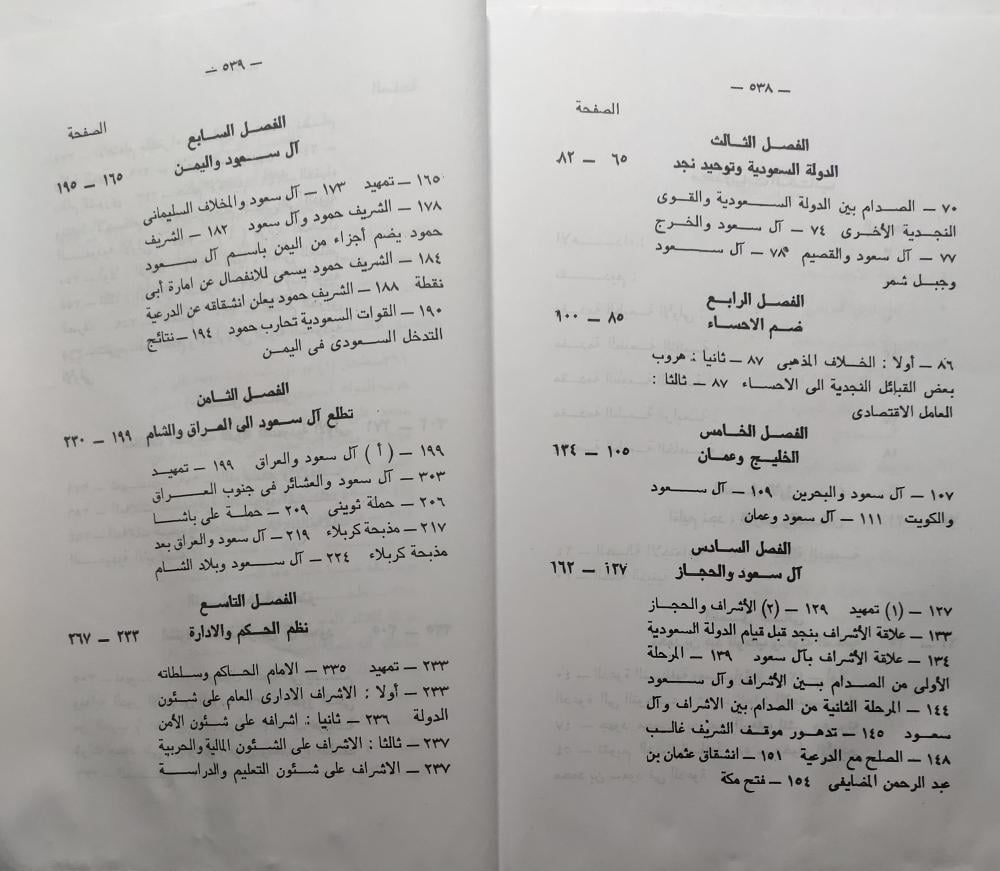 — ٥٣٨ —
الصفحة
الفصل الثالث
الدولة السعودية وتوحيد نجد ٦٥ — ٨٢
٧٠ — الصدام بين الدولة الســـعودية والقوى
النجدية الأخرى ٧٤ — آل سعود والخرج
٧٧ — آل سعود والقصيم ٧٨ — آل ســـعود
وجبـل شمر
الفصل الرابع
ضـم الاحساء ٨٥ — ١٠٠
٨٦ — أولا : الخلاف المذهبى ٨٧ — ثانيا : هروب
بعض القبائل النجدية الى الاحساء ٨٧ — ثالثا :
العامل الاقتصادى
الفصل الخامس
الخليج وعمان ١٠٥ — ١٣٤
١٠٧ — آل سعود والبحرين ١٠٩ — آل ســـعود
والكويت ١١١ — آل سعود وعمان
الفصل السادس
آل سعود والحجاز ١٢٧ — ١٦٢
١٢٧ — (١) تمهيد ١٢٩ — (٢) الأشراف والحجاز
١٣٣ — علاقة الأشراف بنجد قبل قيام الدولة السعودية
١٣٤ — علاقة الأشراف بآل سعود ١٣٩ — المرحلة
الأولى من الصدام بـين الأشراف وآل ســـعود
١٤٤ — المرحلة الثانية من الصدام بين الاشراف وآل
سعود ١٤٥ — تدهـور موقـف الشريف غالـب
١٤٨ — الصلح مع الدرعية ١٥١ — انشقاق عثمان بن
عبد الرحمن المضايفى ١٥٤ — فتح مكة
— ٥٣٩ —
الصفحة
الفصل الســابع
آل ســـعود واليمن ١٦٥ — ١٩٥
١٦٥ — تمهيد ١٧٣ — آل سعود والمخلاف السليمانى
١٧٨ — الشريف حمود وآل سعود ١٨٢ — الشريف
حمود يضم أجزاء من اليمن باسـم آل ســـعود
١٨٤ — الشريف حمود يسعى للانفصال عن امارة أبى
نقطة ١٨٨ — الشريف حمود يعلن انشقاقه عن الدرعية
١٩٠ — القوات السعودية تحارب حمود ١٩٤ — نتائج
التدخل السعودى فى اليمن
الفصل الثامن
تطلع آل سعود الى العراق والشام ١٩٩ — ٢٣٠
١٩٩ — ( أ ) آل سعود والعراق ١٩٩ — تمهيـد
٣٠٣ — آل سعود والعشائر فى جنوب العـــراق
٢٠٦ — حملة ثوينى ٢٠٩ — حملـة على باشـا
٢١٧ — مذبحة كربلاء ٢١٩ — آل سعود والعراق بعد
مذبحة كربلاء ٢٢٤ — آل ســـعود وبلاد الشـام
الفصل التاسع
نظم الحـكم والادارة ٢٣٣ — ٢٦٧
٢٣٣ — تمهيد ٣٣٥ — الامام الحـاكم وسـلطاته
٢٣٣ — أولا : الاشراف الادارى العام على شـئون
الدولة ٢٣٦ — ثانيـا : اشرافه على شـئون الأمن
٢٣٧ — ثالثا : الاشراف على الشـئون المالية والحربية
٢٣٧ — الاشراف على شـئون التعليم والدراســة